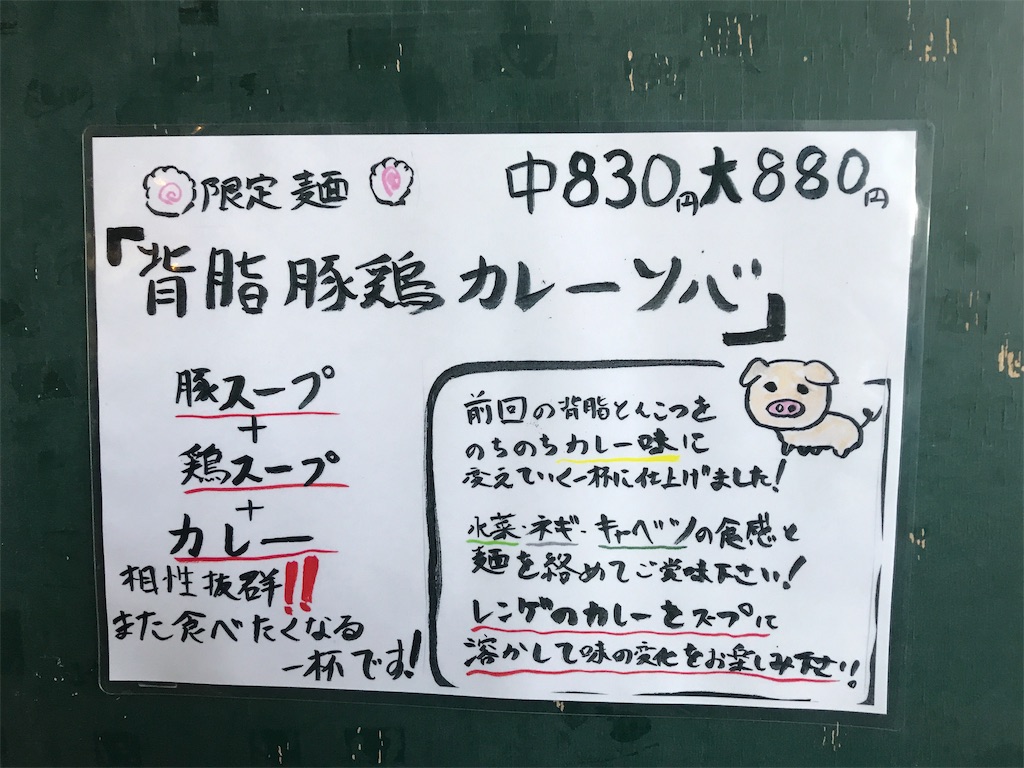 限定麺
中830円大880円
「背脂豚鶏カレーソバ」
豚スープ
+
鶏スープ
+
カレー
相性抜群!!
また食べたくなる
一杯です!
前回の背脂とんこつを
のちのちカレー味に
変えていく一杯に仕上げました!
水菜・ネギ・キャベツの食感と
麺を絡めてご賞味下さい!
レンゲのカレーをスープに
溶かして味の変化をお楽しみ下さい!!